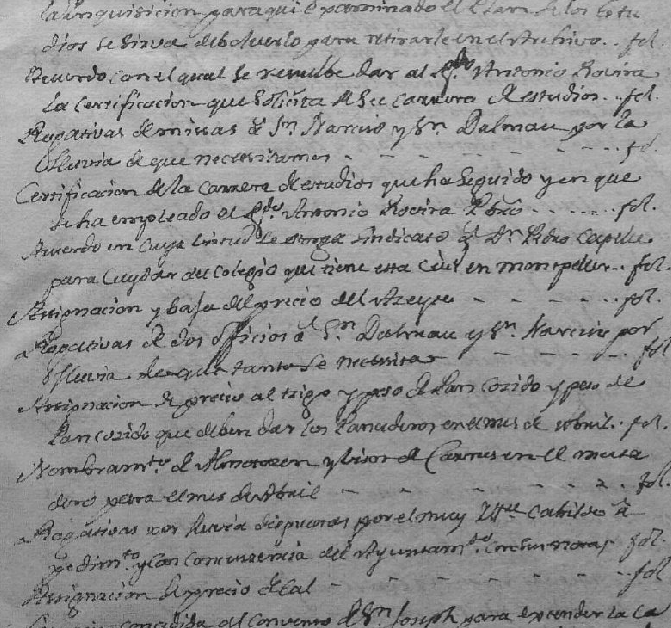 la Inquisicion para que examinado el Plan de los Estu
dios se sirva debolverlo para retirarle en el Archivo.. fol.
Acuerdo con el qual se resuelve dar al Antonio Rovira
la Certificacion que solicita de su carrera de estudios.. fol.
Rogativas de missas a Sn. Narciso y Sn. Dalmau por la
lluvia de que necessitamos - - - - - fol.
Certificacion de la carrera de estudios que ha seguido y en que
se ha empleado el Antonio Rovira Pbro....... fol.
Acuerdo en cuya virtud se otorga sindicato a Dn. Pedro
para cuydar del Colegio que tiene esta Ciud. en Mompeller.. fol.
Assignacion y baja del precio del Azeyte - - - - fol.
Rogativas de dos officios a Sn. Dalmau y Sn. Narciso por
lluvia de que tanto se necessita - - - - fol
Assignacion de precio al trigo y peso de Pan cozido y peso de
Pan cozido que deben dar los Panaderos en el mes de Abril.. fol.
Nombramto. de Almotazen y Visor de Carnes en el mata
dero para el mes de Abril - - - - fol.
Rogativas por lluvia dispuestas por el muy Iltre. Cabildo a
pedimto. y con concurrencia del Ayuntamto. fol.
Assignacion de precio de cal - - - - - fol.
concedida al Convento de Sn. Joseph para expender la ca